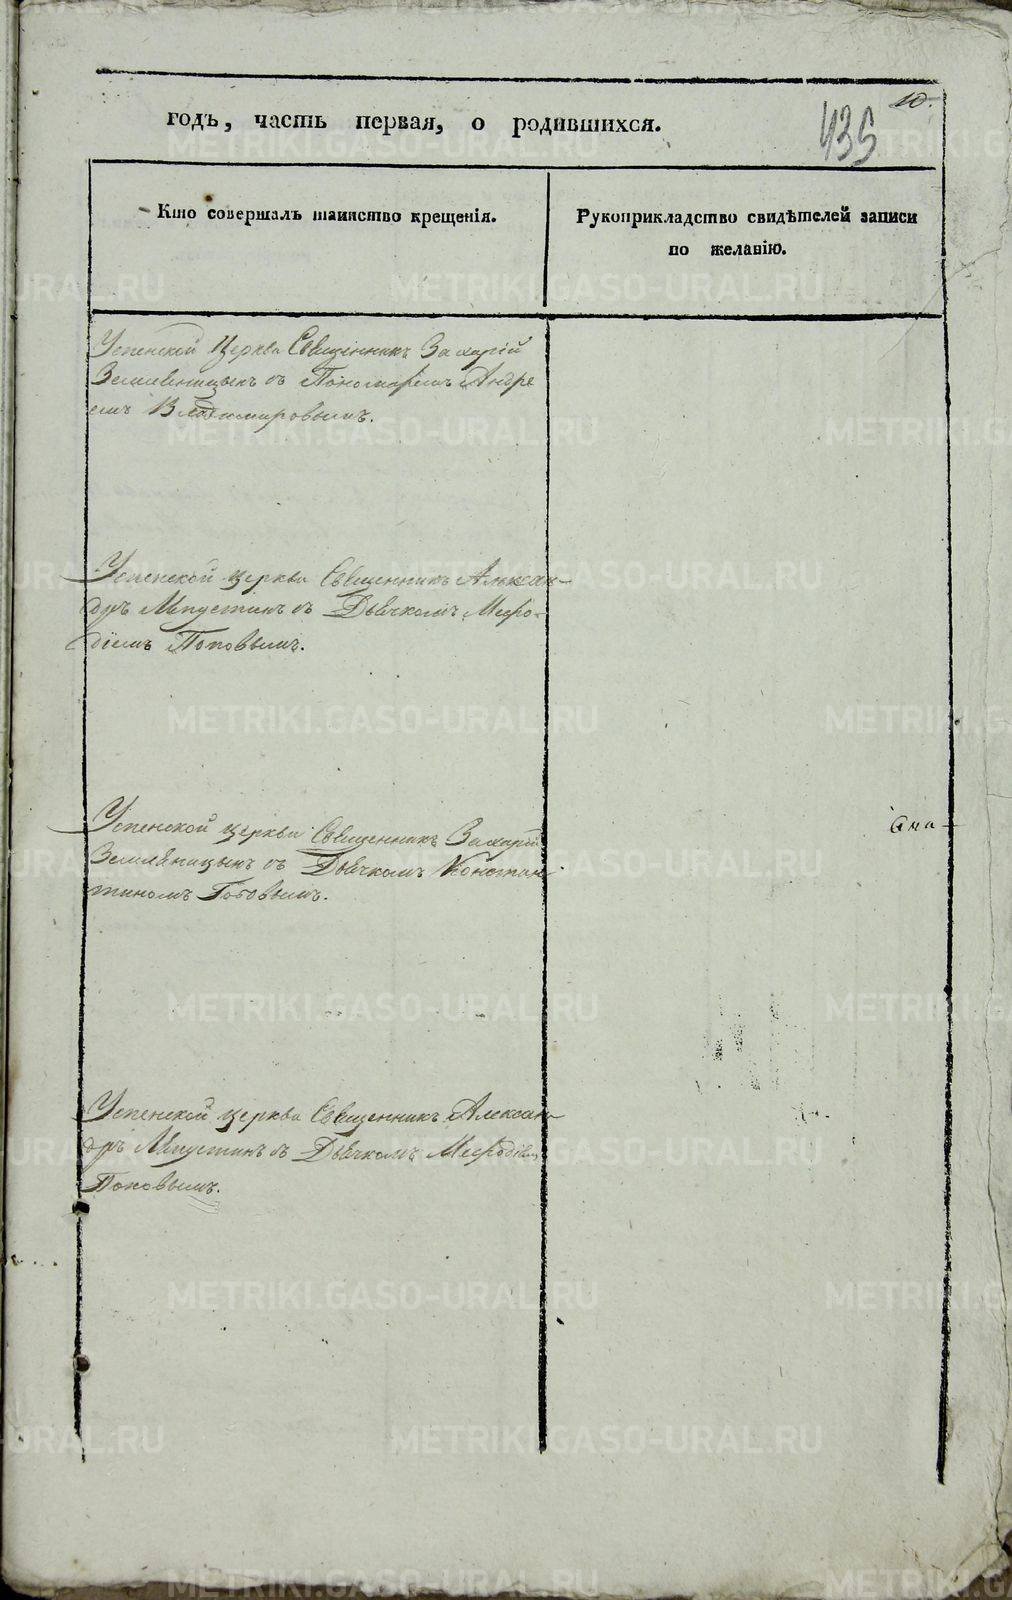 10.
435
годъ, часть первая, о родившихся.
Кто совершалъ таинство крещенія.
Рукоприкладство свидѣтелей записи
по желанію.
Успенской Церкви Священникъ Захарій
Земляницынъ съ Пономаремъ Андре
емъ Владимировымъ.
Успенской церкви Священникъ Алексан-
дръ Мѣпустинъ съ Дьячкомъ Мефо-
діемъ Поповымъ.
Успенской церкви Священникъ Захарій
Земляницынъ съ Дьячкомъ Констан
тиномъ Поповымъ.
Успенской церкви Священникъ Алексан
дръ Мѣпустинъ съ Дьячкомъ Мефодіемъ
Поповымъ.
METRIKI.GASO-URAL.RU